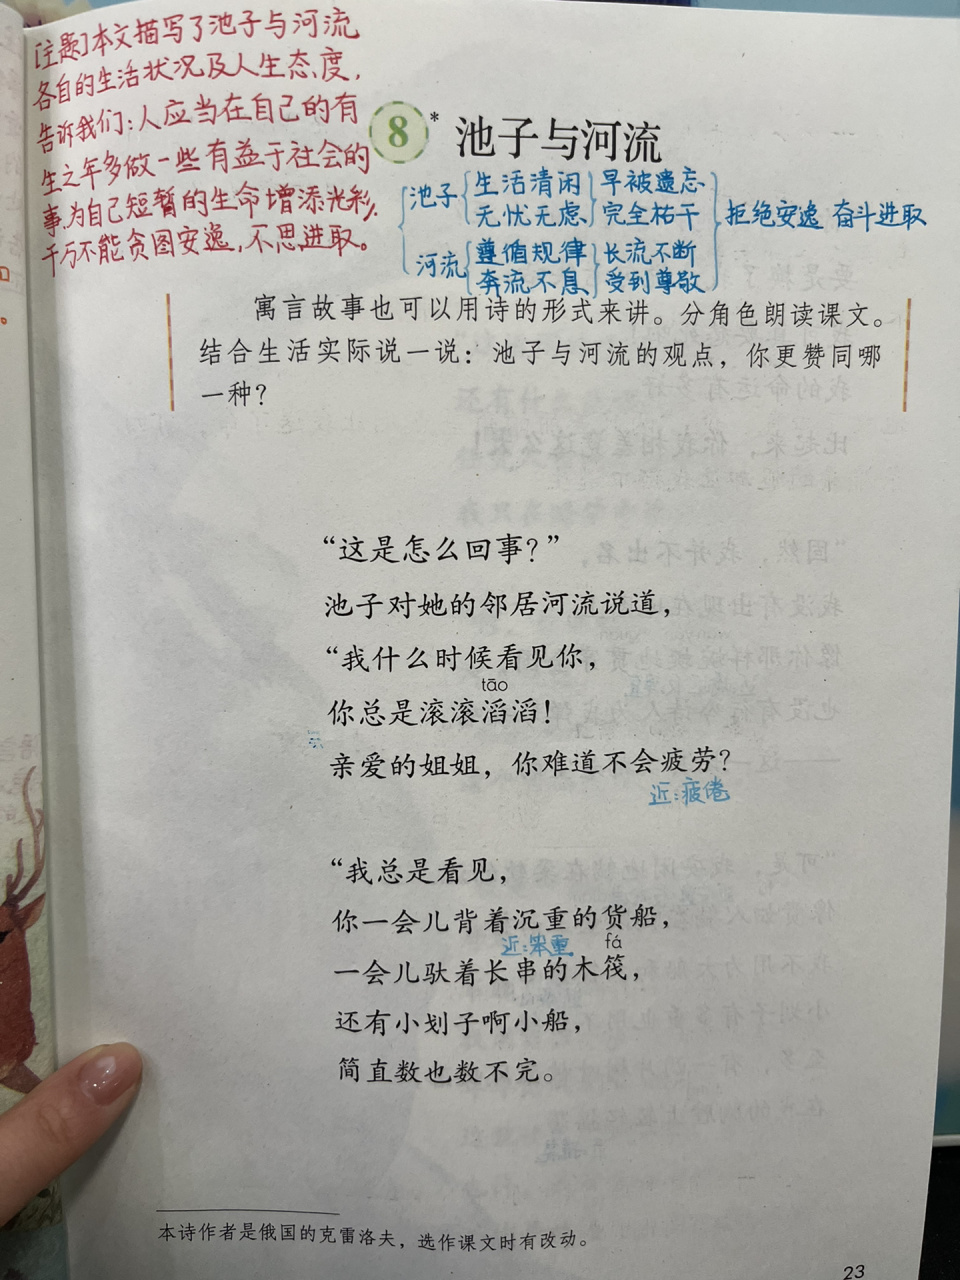 [主题]本文描写了池子与河流
各自的生活状况及人生态度,
告诉我们:人应当在自己的有
生之年多做一些有益于社会的
事,为自己短暂的生命增添光彩,
千万不能贪图安逸,不思进取。
8* 池子与河流
池子 生活清闲 早被遗忘
无忧无虑 完全枯干
拒绝安逸 奋斗进取
河流 遵循规律 长流不断
奔流不息 受到尊敬
寓言故事也可以用诗的形式来讲。分角色朗读课文。
结合生活实际说一说：池子与河流的观点，你更赞同哪
一种？
“这是怎么回事？”
池子对她的邻居河流说道，
“我什么时候看见你，
tāo
你总是滚滚滔滔！
亲爱的姐姐，你难道不会疲劳？
近:疲倦
“我总是看见，
你一会儿背着沉重的货船，
近:笨重
fá
一会儿驮着长串的木筏，
还有小划子啊小船，
简直数也数不完。
本诗作者是俄国的克雷洛夫，选作课文时有改动。
23